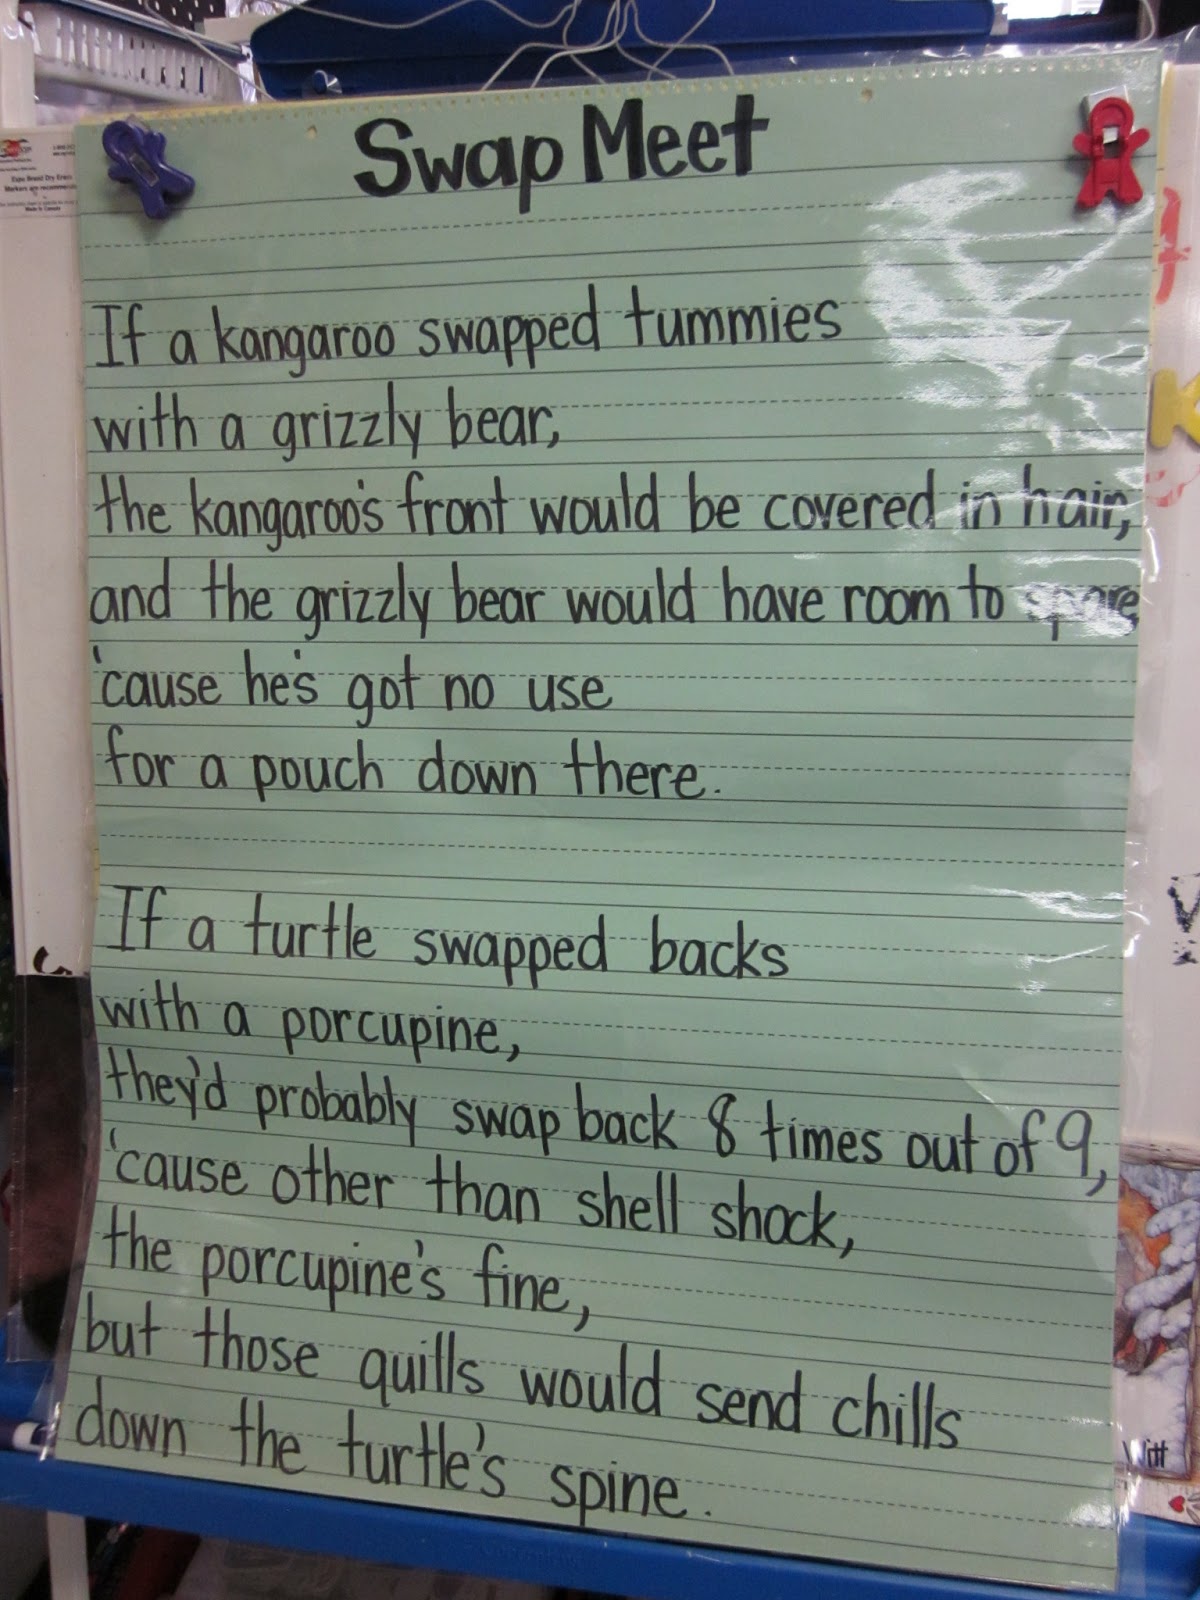 Swap Meet
If a kangaroo swapped tummies
with a grizzly bear,
the kangaroo's front would be covered in hair,
and the grizzly bear would have room to spare
'cause he's got no use
for a pouch down there.
If a turtle swapped backs
with a porcupine,
they'd probably swap back 8 times out of 9,
'cause other than shell shock,
the porcupine's fine,
but those quills would send chills
down the turtle's spine.
Expo Brand Dry Erase
Markers are recommen
Made in Canada
K
V
Witt